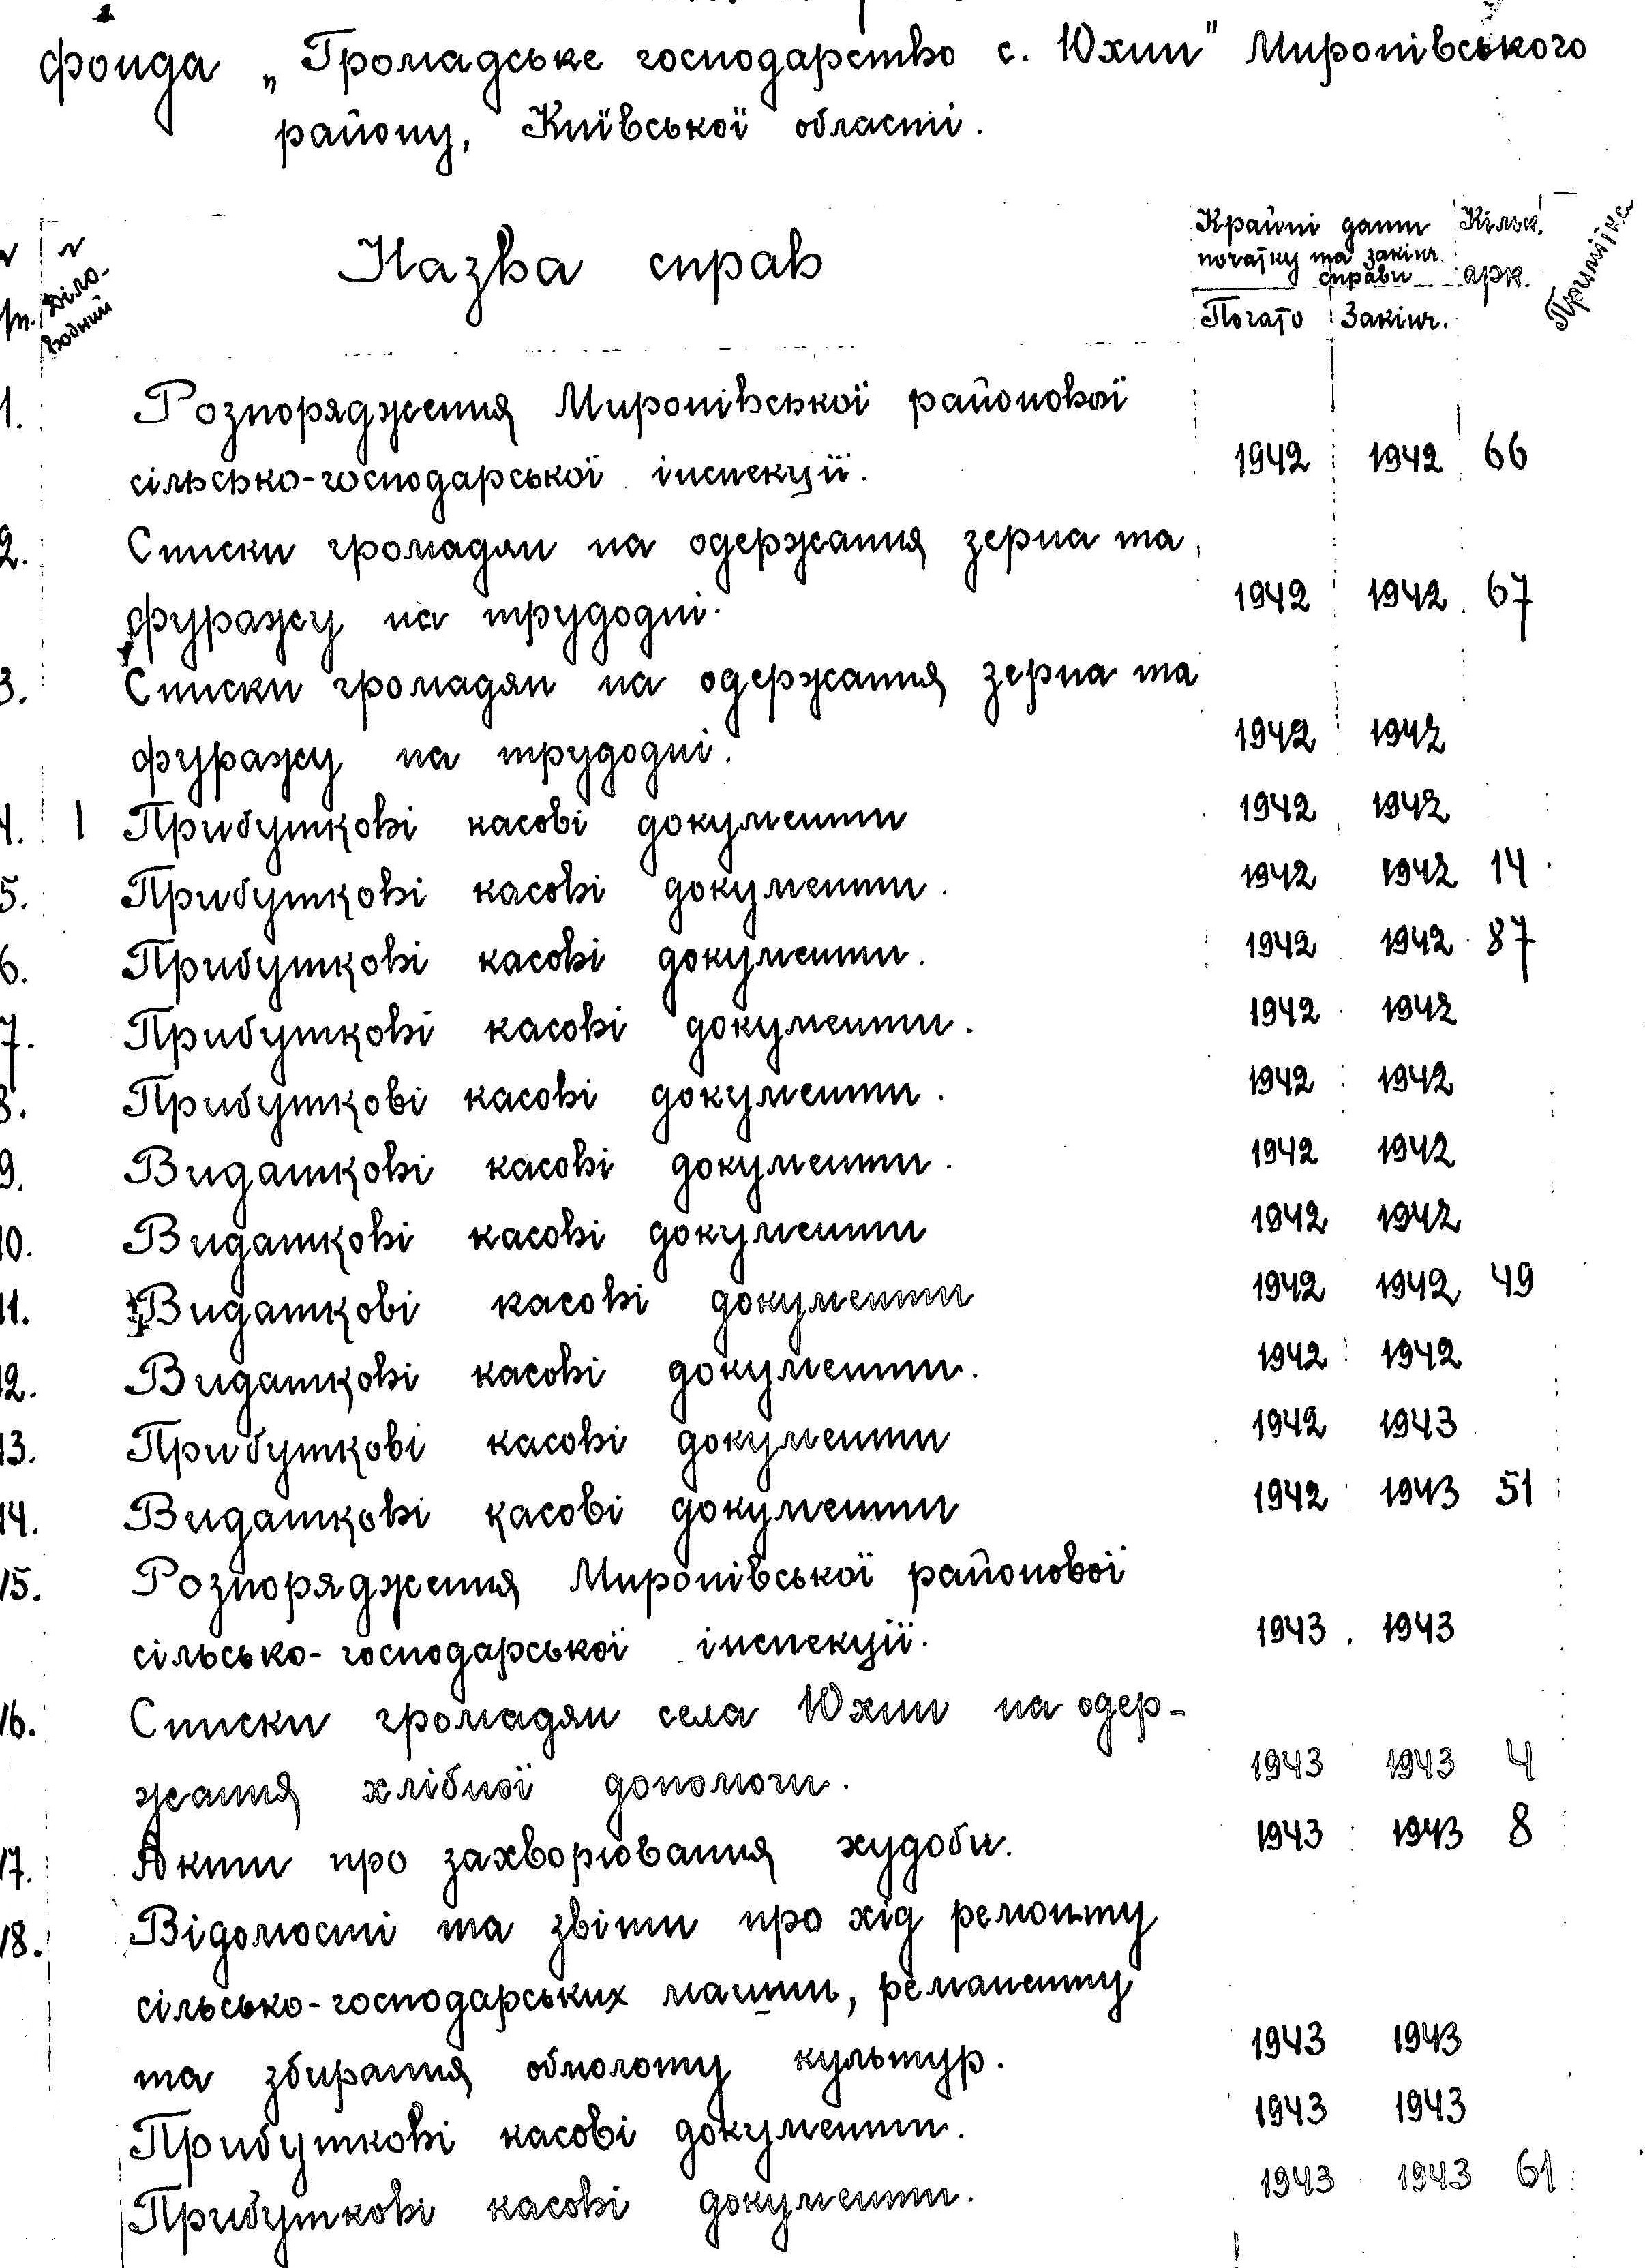 фонда „Громадське господарство с. Юхни" Миронівського
району, Київської області.
Назва справ
Крайні дати
початку та закінч.
справи
Кільк.
арк.
Примітка
Діло-
водний
Почато Закінч.
1. Розпорядження Миронівської районової
сільсько-господарської інспекції. 1942 1942 66
2. Списки громадян на одержання зерна та
фуражу на трудодні. 1942 1942 67
3. Списки громадян на одержання зерна та
фуражу на трудодні. 1942 1942
4. 1 Прибуткові касові документи 1942 1942
5. Прибуткові касові документи. 1942 1942 14
6. Прибуткові касові документи. 1942 1942 87
7. Прибуткові касові документи. 1942 1942
8. Прибуткові касові документи. 1942 1942
9. Видаткові касові документи. 1942 1942
10. Видаткові касові документи 1942 1942
11. Видаткові касові документи 1942 1942 49
12. Видаткові касові документи. 1942 1942
13. Прибуткові касові документи 1942 1943
14. Видаткові касові документи 1942 1943 51
15. Розпорядження Миронівської районової
сільсько-господарської інспекції. 1943 1943
16. Списки громадян села Юхни на одер-
жання хлібної допомоги. 1943 1943 4
17. Акти про захворювання худоби. 1943 1943 8
18. Відомості та звіти про хід ремонту
сільсько-господарських машин, реманенту
та збирання обмолоту культур. 1943 1943
Прибуткові касові документи. 1943 1943
Прибуткові касові документи. 1943 1943 61